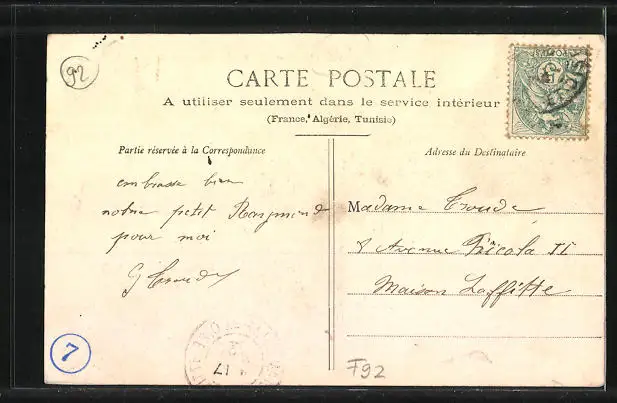 92
CARTE POSTALE
A utiliser seulement dans le service intérieur
(France, Algérie, Tunisie)
Partie réservée à la Correspondance
Adresse du Destinataire
embrasse bien
notre petit Raymond
pour moi
G Croude
Madame Croude
8 Avenue Nicola II
Maison Laffitte
7
17
F92